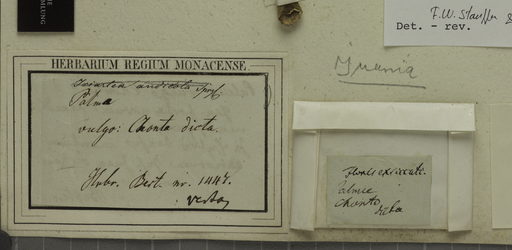 MLUNG
F. W. Stauffer &
Det. – rev.
HERBARIUM REGIUM MONACENSE.
Iriartea andicola Spreng.
Palma
vulgo: Chonta dicta.
Herbr. Berl. nr. 1447.
Flores exsiccati.
Palmae
Chonta
dicta